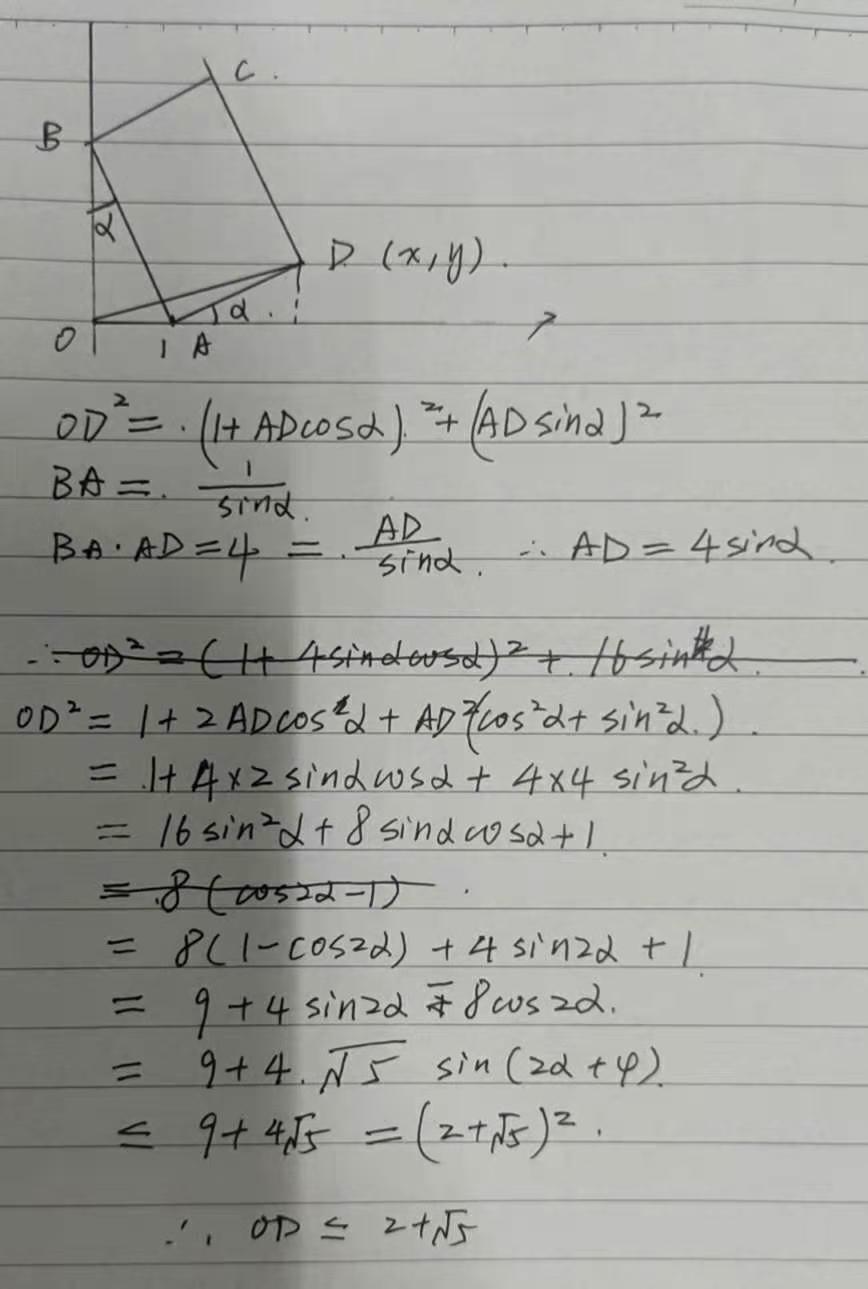 C .
B
α
D (x,y) .
α .
O 1 A
OD² = . (1+ ADcosα)² + (ADsinα)²
BA = . 1/sinα.
BA·AD = 4 = . AD/sinα . ∴ AD = 4sinα .
∴ OD² = (1+ 4sinαcosα)² + . 16sin⁴α .
OD² = 1 + 2ADcosα + AD²(cos²α + sin²α.) .
= 1+ 4×2 sinαcosα + 4×4 sin²α .
= 16sin²α + 8sinαcosα+1.
= 8(cos2α-1) .
= 8(1-cos2α) + 4sin2α + 1.
= 9 + 4sin2α - 8cos2α.
= 9+4.√5 sin(2α+φ).
≤ 9+4√5 = (2+√5)² .
∴ OD ≤ 2+√5